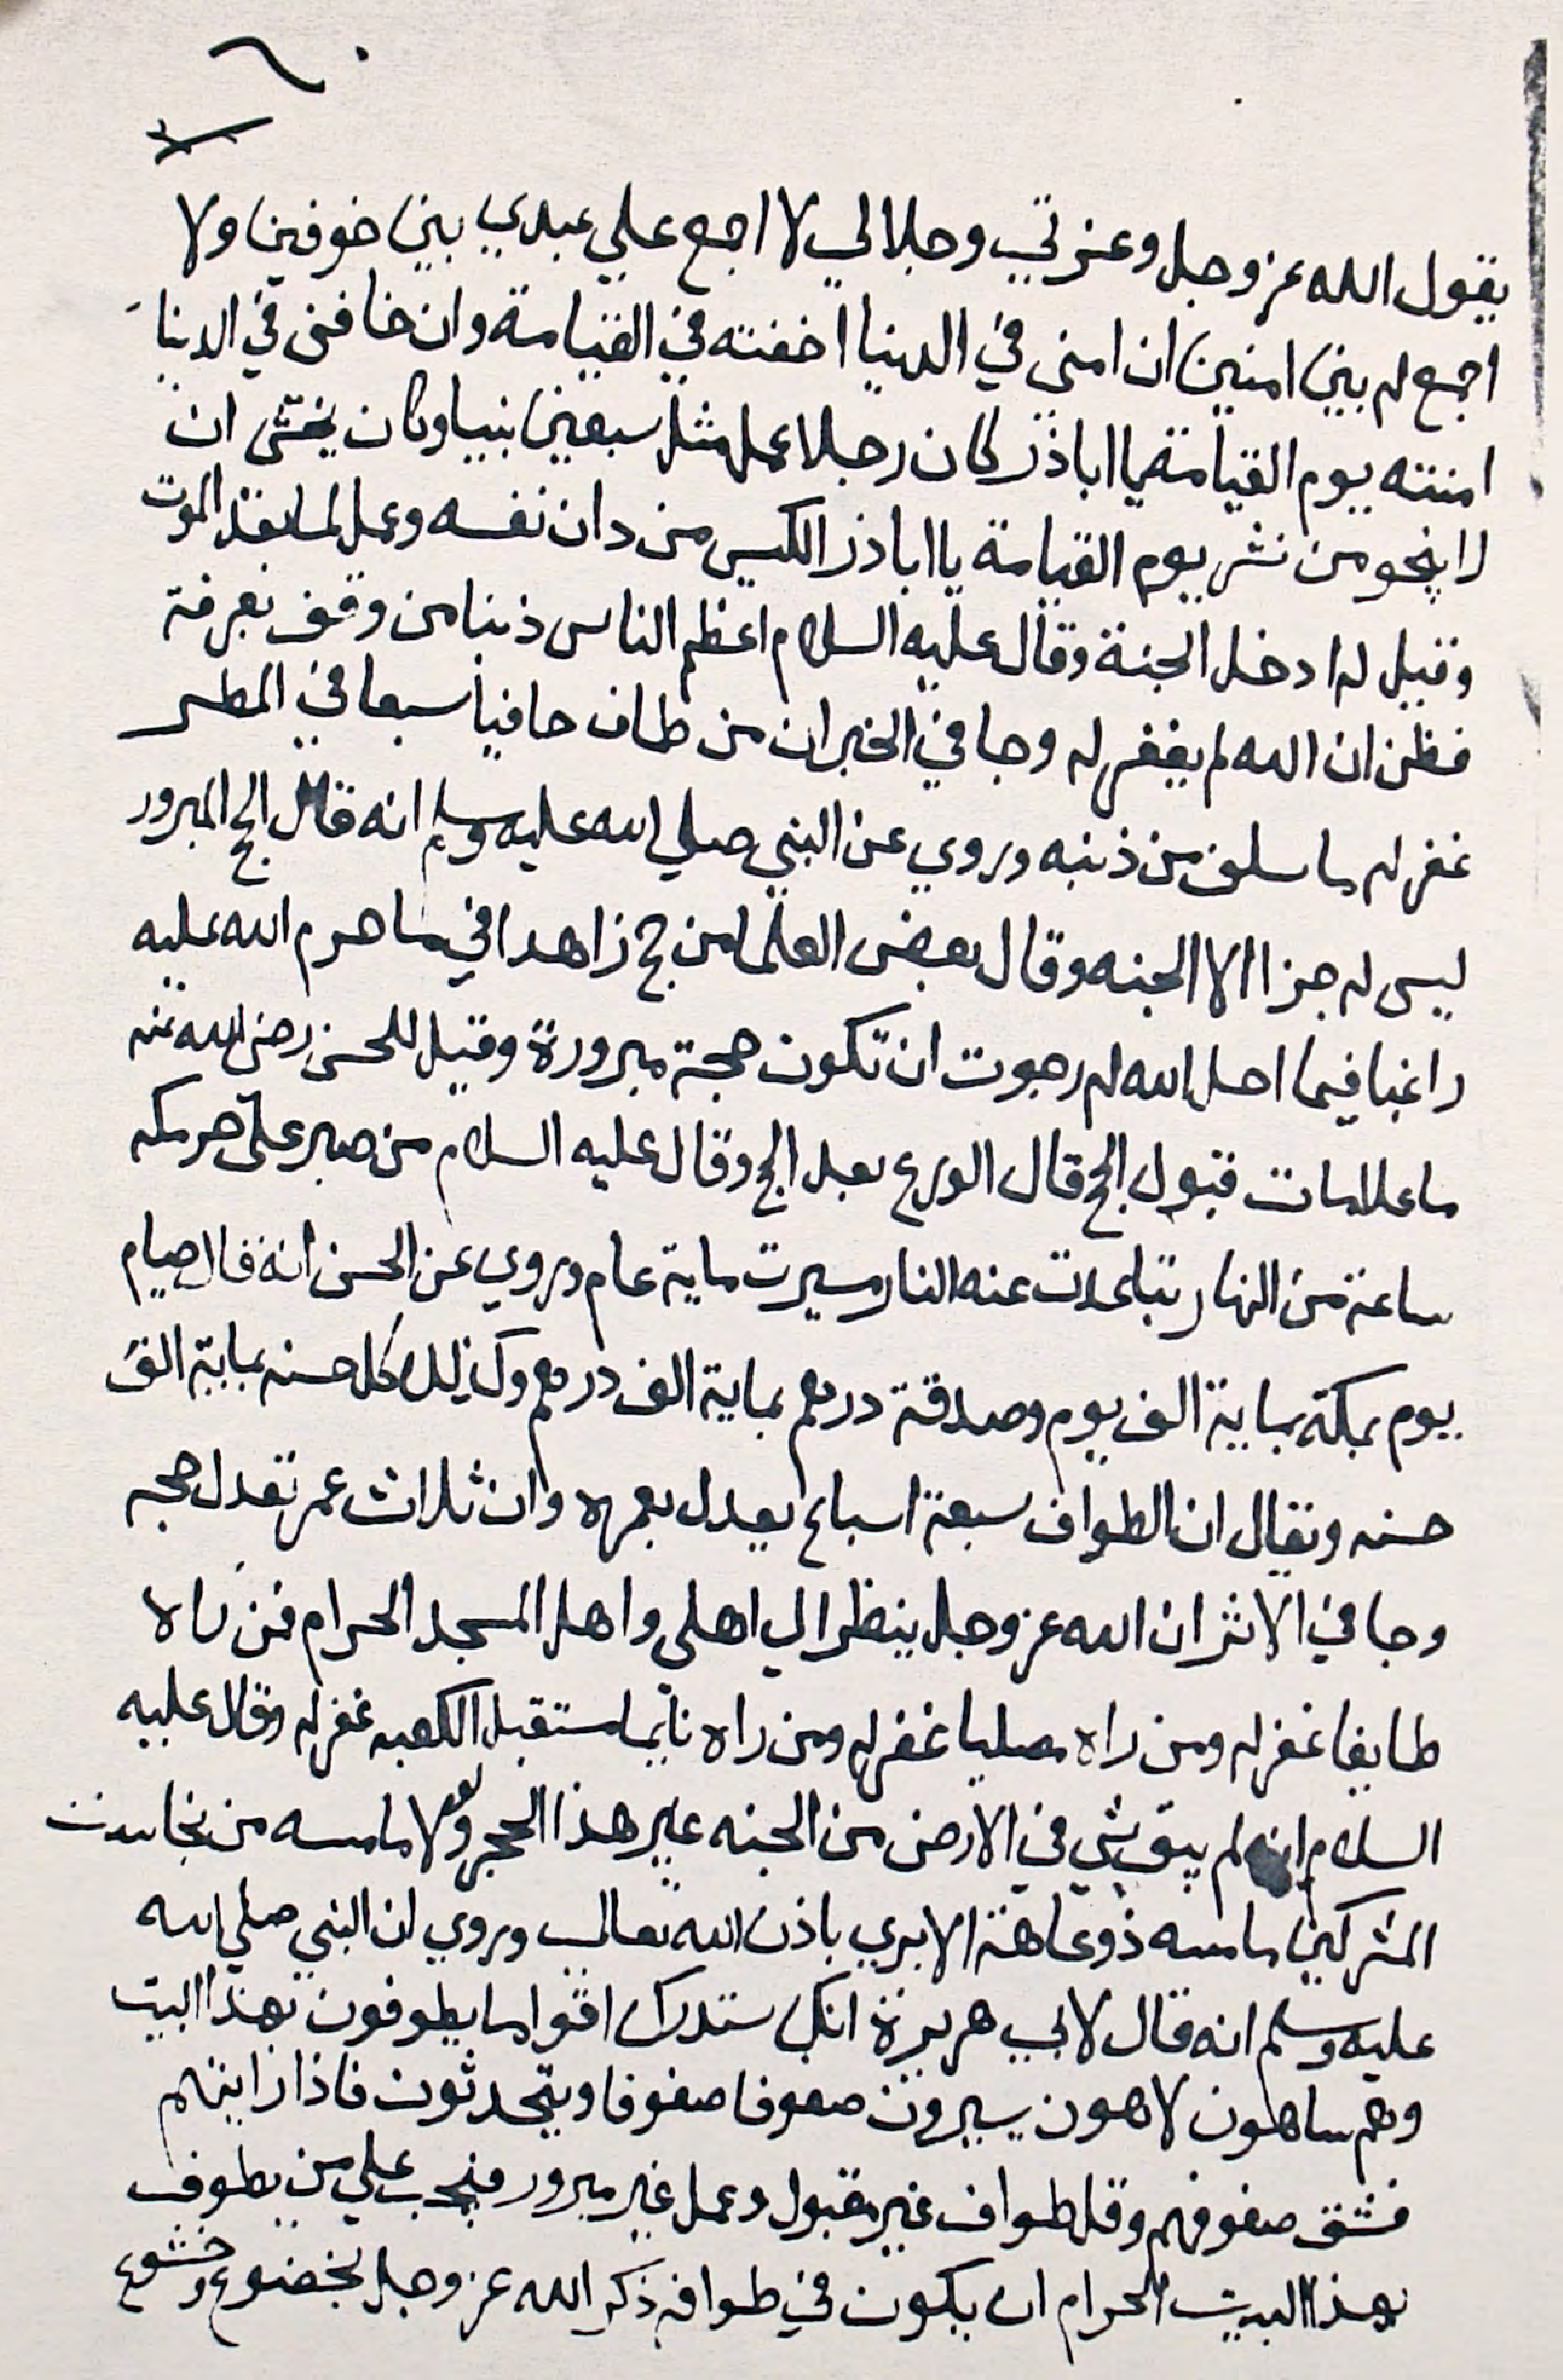 ٦٠
يقول الله عز وجل وعزتي وجلالي لا اجمع علي عبدي بين خوفين ولا
اجمع له بين امنين ان امنى في الدنيا اخفته في القيامة وان خافنى في الدنيا
امنته يوم القيامة يا اباذر كان رجلا عمل مثل سبعين نبيا وكان يخشى ان
لا ينجو من نشر يوم القيامة يا اباذر الكيس من دان نفسه وعمل لما بعد الموت
وقيل له ادخل الجنة وقال عليه السلام اعظم الناس ذنبا من وقف بعرفة
فظن ان الله لم يغفر له وجا في الخبر ان من طاف حافيا سبعا في المطر
غفر له ما سلف من ذنبه وروي عن النبي صلي الله عليه وسلم انه قال الحج المبرور
ليس له جزا الا الجنه وقال بعض العلما من حج زاهدا في ما حرم الله عليه
راغبا فيما احل الله له رجوت ان تكون حجة مبرورة وقيل للحسن رضى الله عنه
ما علامات قبول الحج قال الورع بعد الحج وقال عليه السلام من صبر على حر مكه
ساعة من النهار تباعدت عنه النار مسيرت ماية عام وروي عن الحسن انه قال صيام
يوم بمكة بماية الف يوم وصدقة درهم بماية الف درهم وكذلك كل حسنه بماية الف
حسنه ويقال ان الطواف سبعة اسباع يعدل بعمره وان ثلاث عمر تعدل حجه
وجا في الاثر ان الله عز وجل ينظر الي اهلى واهل المسجد الحرام فمن راه
طايفا غفر له ومن راه مصليا غفر له ومن راه نايما مستقبل الكعبه غفر له وقال عليه
السلام انه لم يبق شي في الارض من الجنه غير هذا الحجر ولولا ما مسه من نجاست
المشركين ما مسه ذو عاهة الا بري باذن الله تعالي وروي ان النبي صلي الله
عليه وسلم انه قال لابي هريرة انك ستدرك اقواما يطوفون بهذا البيت
وهم ساهون لاهون يسيرون صفوفا صفوفا ويتحدثون فاذا رايتهم
فشق صفوفهم وقل طواف غير مقبول وعمل غير مبرور فيجب علي من يطوف
بهذا البيت الحرام ان يكون في طوافه ذكر الله عز وجل بخضوع وخشوع